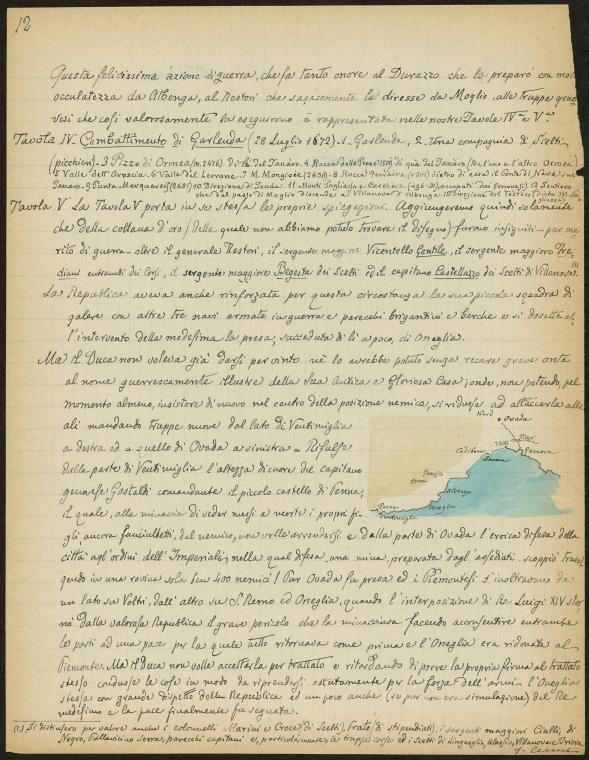 12
Questa felicissima azione di guerra, che fa tanto onore al Durazzo che la preparò con
occulatezza da Albenga, al Restori che sagacemente la diresse da Moglio, alle truppe geno-
vesi che così valorosamente la eseguirono è rappresentata nelle nostre Tavole IVa e Va
Tavola IV. Combattimento di Garlenda (28 Luglio 1672) 1. Garlenda, 2. Una compagnia di Scelti
(picchieri). 3 Pizzo di Ormea (m. 2476) di là del Tanaro. 4 Rocca delle Penne (1501) di quà del Tanaro (tra l'uno e l'altro Ormea)
5 Valle dell'Arroscia. 6 Valle del Lerrone. 7 M. Mongioie (2630). 8. Rocca Ferraira (1301) dietro di essa il Conte di Nava sul
Tanaro. 9 Punta Marguareis (2651) 10 Direzione di Tenda. 11 Monti Pagliasa e Carcheia occupati dai genovesi) 12 Sentiero
che dal passo di Moglio discende a Villanova d'Albenga.
Tavola V La Tavola V porta in se stessa le proprie spiegazioni. Aggiungeremo quindi solamente
che della collana d'oro (della quale non abbiamo potuto trovare il disegno) furono insigniti - per me-
rito di guerra - oltre il generale Restori, il sergente maggiore Vicentello Gentile, il sergente maggiore Fre-
diani entrambi dei Corsi, il sergente maggiore Begesta dei Scelti ed il capitano Castellazzo dei Scelti di Villanova. (1)
La Republica aveva anche rinforzata per questa circostanza la sua piccola squadra di
galere con altre tre navi armate in guerra e parecchi brigantini e barche e si dovette al-
l'intervento della medesima la presa, succeduta di lì a poco, di Oneglia.
Ma il Duca non voleva già darsi per vinto nè lo avrebbe potuto senza recare grave onta
al nome guerrescamente illustre della Sua Antica e Gloriosa Casa; onde, non potendo, pel
momento almeno, insistere di nuovo nel centro della posizione nemica, si ridusse ad attaccarla alle
ali mandando truppe nuove dal lato di Ventimiglia
a destra ed a quello di Ovada a sinistra = Rifulse
dalla parte di Ventimiglia l'altezza di cuore del capitano
genovese Gastaldi comandante il piccolo castello di Penna,
il quale, alla minaccia di veder messi a morte i propri fi-
gli, ancora fanciulletti, dal nemico, non volle arrendersi e dalla parte di Ovada l'eroica difesa della
città agl'ordini dell'Imperiali, nella qual difesa, una mina, preparata dagl'assediati, scoppiò
gendo in una rovina sola ben 400 nemici! Pur Ovada fu presa ed i Piemontesi s'inoltravano da
un lato su Voltri, dall'altro su S. Remo ed Oneglia, quando l'interposizione di Re Luigi XIV stor-
nò dalla valorosa Republica il grave pericolo che la minacciava facendo acconsentire entrambe
le parti ad una pace per la quale tutto ritornava come prima e l'Oneglia era ridonata al
Piemonte. Ma il Duca non volle accettarla per trattato e ritardando di porre la propria firma al trattato
stesso condusse le cose in modo da riprendersi astutamente per la forza dell'armi l'Oneglia
stessa con grande dispetto della Republica ed un poco anche (se pur non era simulazione) del Re
medesimo e la pace finalmente fu segnata.
Nord
Ovada
Voltri
Genova
Cadibona
Savona
Ormea
Albenga
Oneglia
Penna
Ventimiglia
(1) Si distinsero per valore anche i colonnelli Marini e Croce (di Scelti), Prato (di stipendiati), i sergenti maggiori Cialli, di
Negro, Pallavicino Serra, parecchi capitani e, particolarmente, le truppe corse ed i scelti di Lingueglia, Alassio, Villanova e Triora.